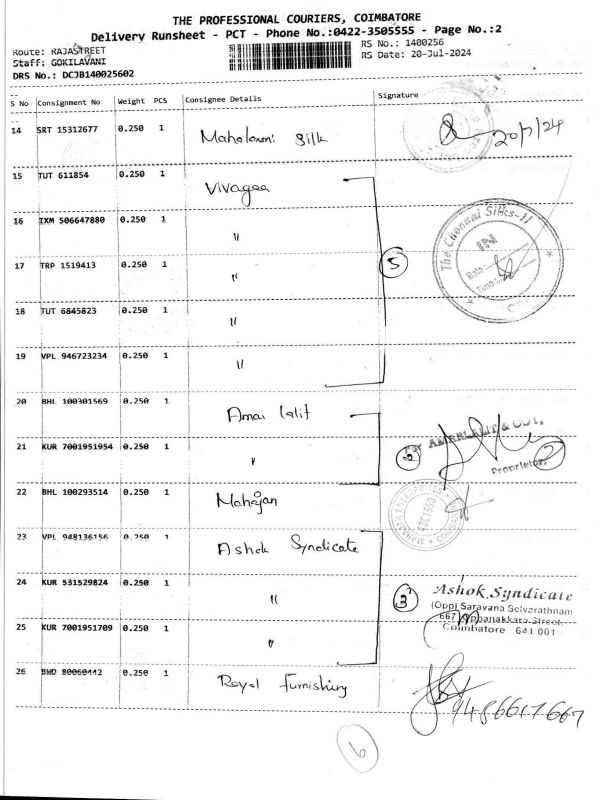 THE PROFESSIONAL COURIERS, COIMBATORE
Delivery Runsheet - PCT - Phone No.:0422-3505555 - Page No.:2
Route: RAJASTREET
RS No.: 1400256
Staff: GOKILAVANI
RS Date: 20-Jul-2024
DRS No.: DCJB140025602
S No Consignment No Weight PCS Consignee Details Signature
14 SRT 15312677 0.250 1 Mahalaxmi Silk 20/7/24
15 TUT 611854 0.250 1 Vivagaa
16 IXM 506647880 0.250 1 "
The Chennai Silks-11
IN
Date
Time
17 TRP 1519413 0.250 1 " 5
18 TUT 6845823 0.250 1 "
19 VPL 946723234 0.250 1 "
20 BHL 100301569 0.250 1 Amar lalit
For AMARLALIT & COY,
21 KUR 7001951954 0.250 1 " 2 2
Proprietor
22 BHL 100293514 0.250 1 Mahajan
23 VPL 948136156 0.250 1 Ashok Syndicate
24 KUR 531529824 0.250 1 " 3
Ashok Syndicate
(Opp) Saravana Selvarathnam
667, Oppanakkara Street,
Coimbatore 641 001
25 KUR 7001951709 0.250 1 "
26 BWD 80060442 0.250 1 Royal Furnishing
9486617667
6